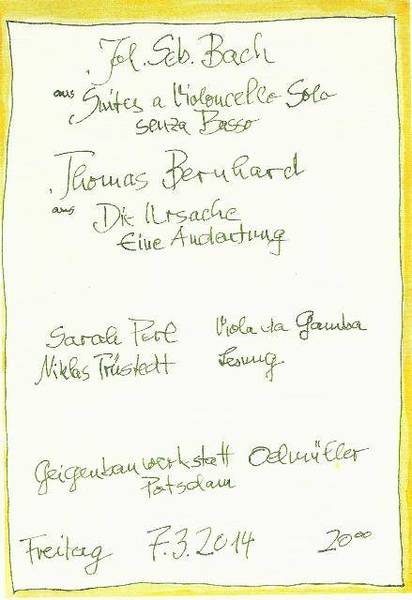 Joh. Seb. Bach
aus Suites a Violoncello Solo
senza Basso
Thomas Bernhard
aus Die Ursache
Eine Andeutung
Sarah Perl Viola da Gamba
Niklas Trüstedt Lesung
Geigenbauwerkstatt Oelmüller
Potsdam
Freitag 7.3.2014 20⁰⁰